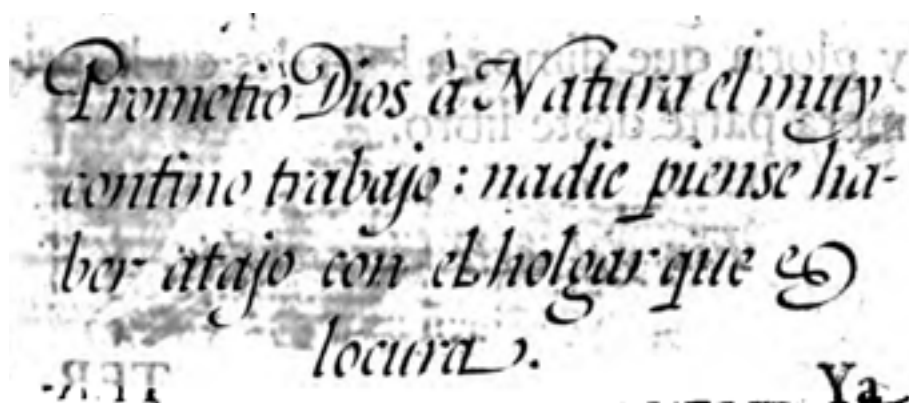 Prometiò Dios à Natura el muy
contino trabajo: nadie piense ha-
ber atajo con el holgar que es
locura.
Ya